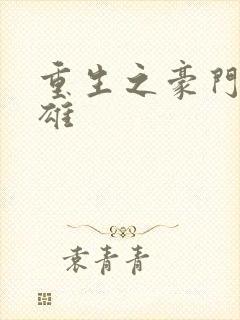 重生之豪門
雄
袁青青